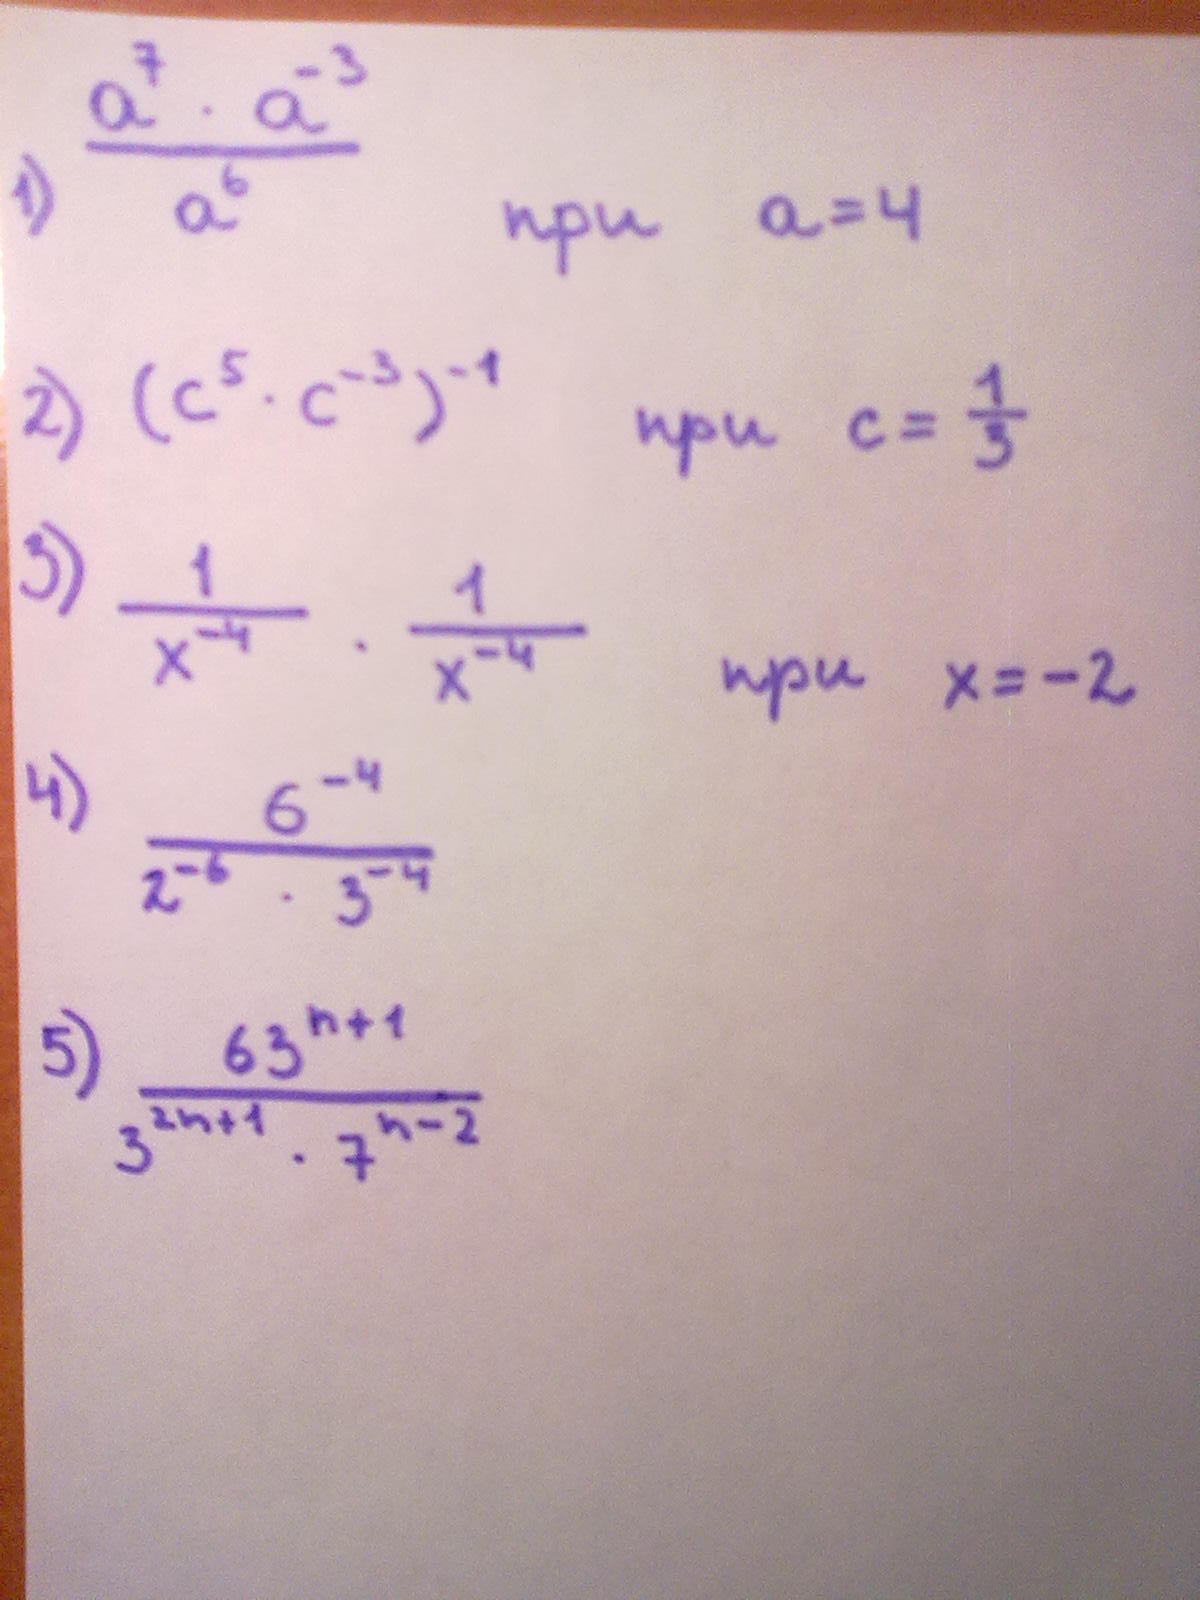 1) a⁷ · a⁻³ / a⁶ при a = 4
2) (c⁵ · c⁻³)⁻¹ при c = 1/3
3) 1/x⁻⁴ · 1/x⁻⁴ при x = -2
4) 6⁻⁴ / 2⁻⁶ · 3⁻⁴
5) 63ⁿ⁺¹ / 3²ⁿ⁺¹ · 7ⁿ⁻²